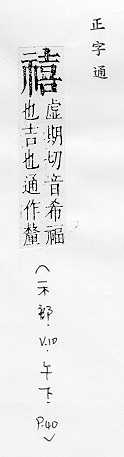 正字通
禧
虛期切音希福
也吉也通作釐
(示部.V.10.午下.P.40)